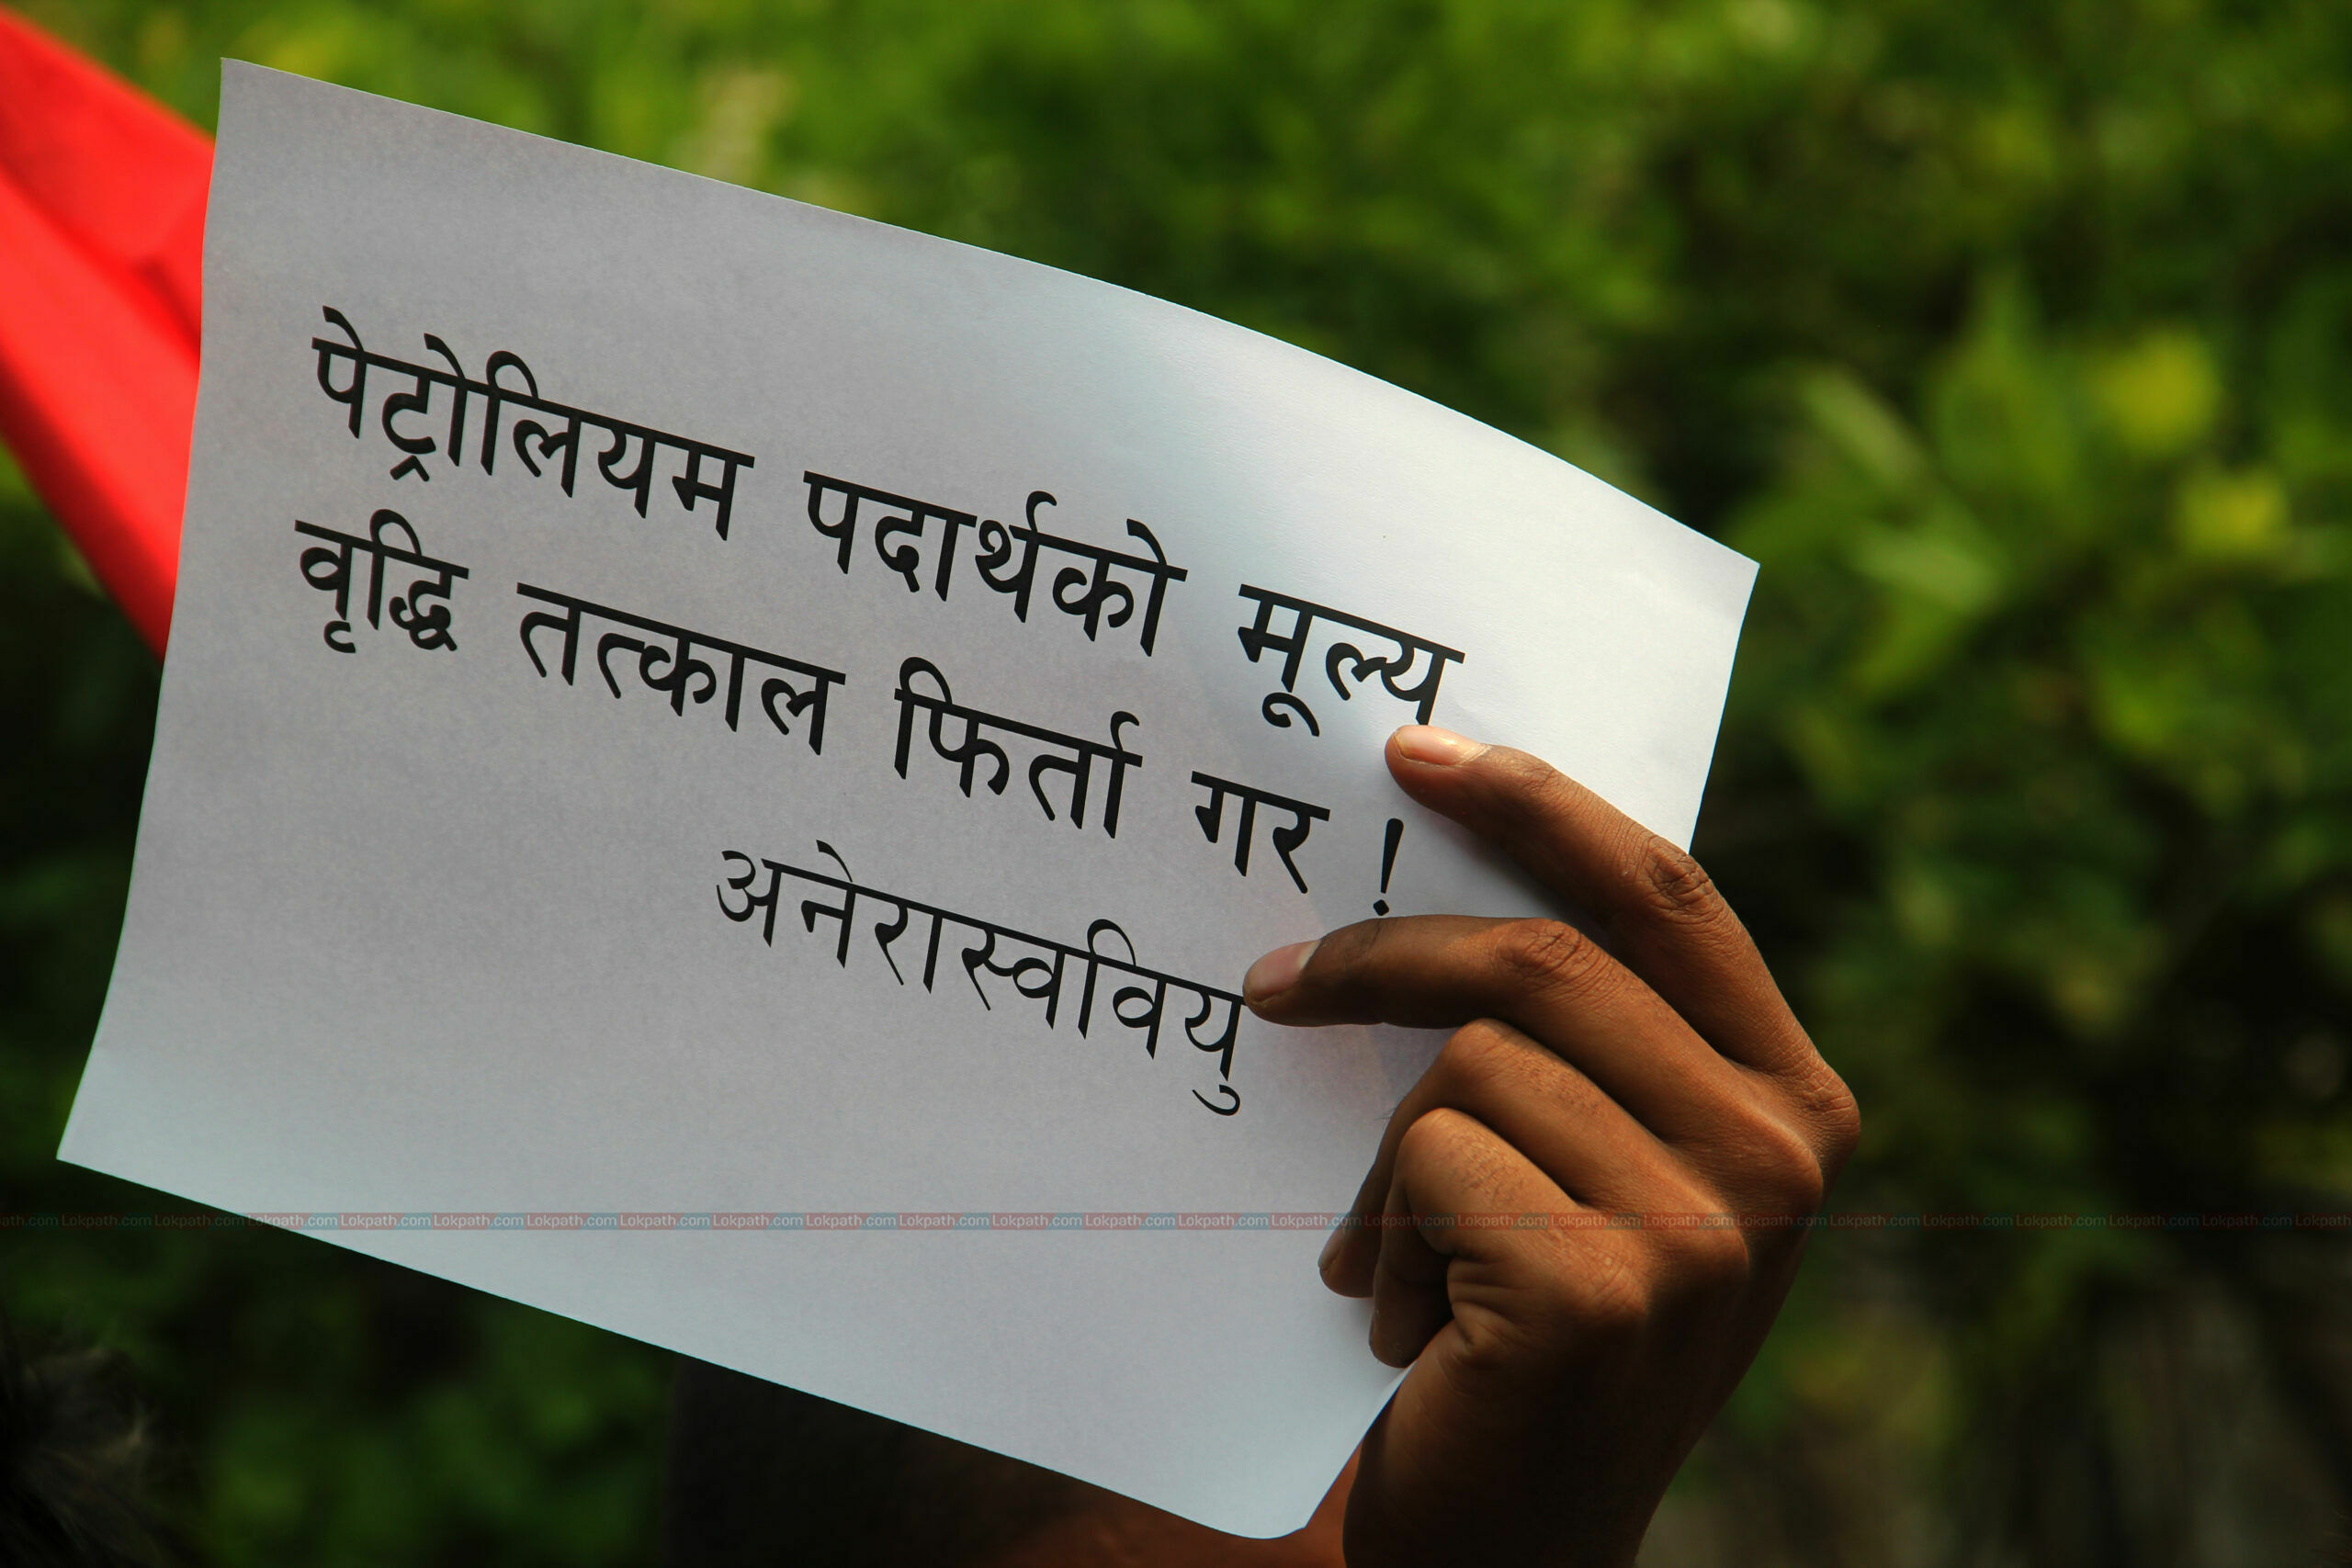 पेट्रोलियम पदार्थको मूल्य
वृद्धि तत्काल फिर्ता गर !
अनेरास्ववियु
Lokpath.com Lokpath.com Lokpath.com Lokpath.com Lokpath.com Lokpath.com Lokpath.com Lokpath.com Lokpath.com Lokpath.com Lokpath.com Lokpath.com Lokpath.com Lokpath.com Lokpath.com Lokpath.com Lokpath.com Lokpath.com Lokpath.com Lokpath.com Lokpath.com Lokpath.com Lokpath.com Lokpath.com